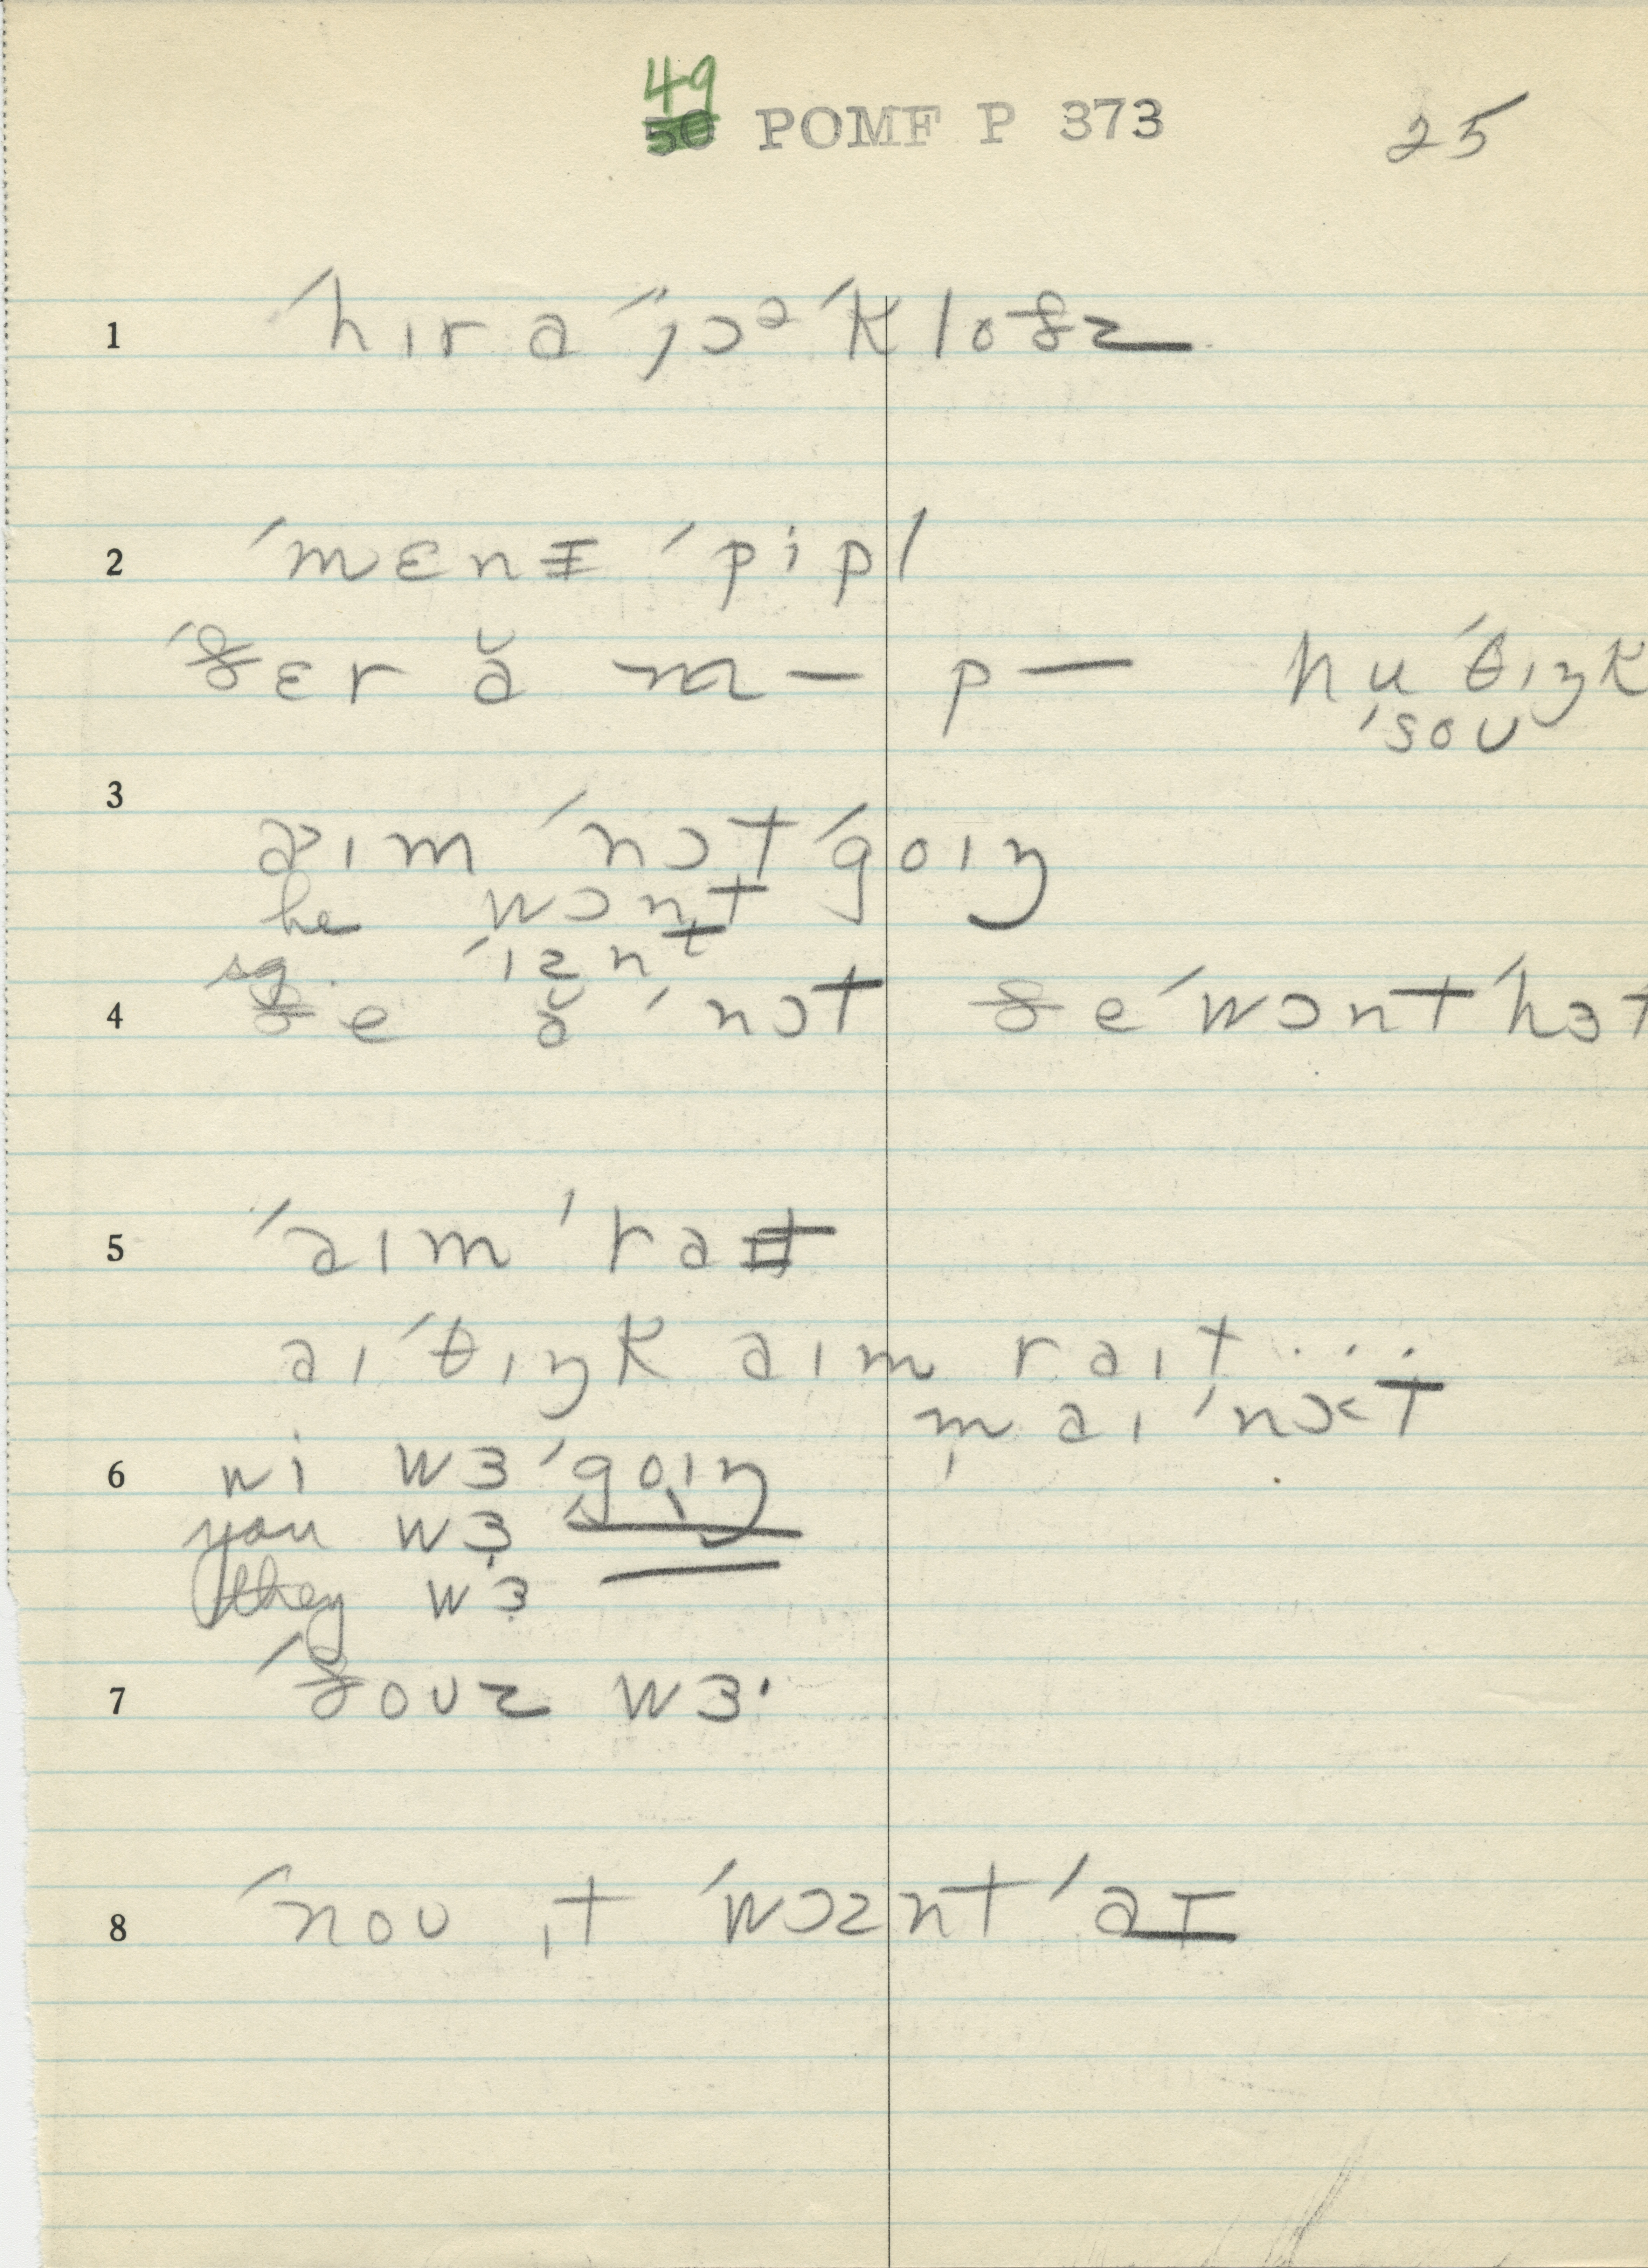 49
50 POMF P 373 25
1 ˈhɪr a ˈˈjɔᵊ ˈkloðz
2 ˈmɛnɪ ˈpipl
ˈðɛr ă m – p – hu ˈθɪŋk
ˈsoʊ
3 aɪm ˈnɔt ˈgoɪŋ
he wɔnt
sg. ˈɪznt
4 ðe ă ˈnɔt ðe ˈwɔnt ˈhɜt
5 ˈaɪm ˈraɪt
aɪ ˈθɪŋk aɪm raɪt ...
m̩ aɪ ˈnɔt
6 wi wɜ ˈgoɪŋ
you wɜ
they wɜ
7 ˈðoʊz wɜ·
8 ˈnoʊ ɪt ˈwɔznt ˈaɪ